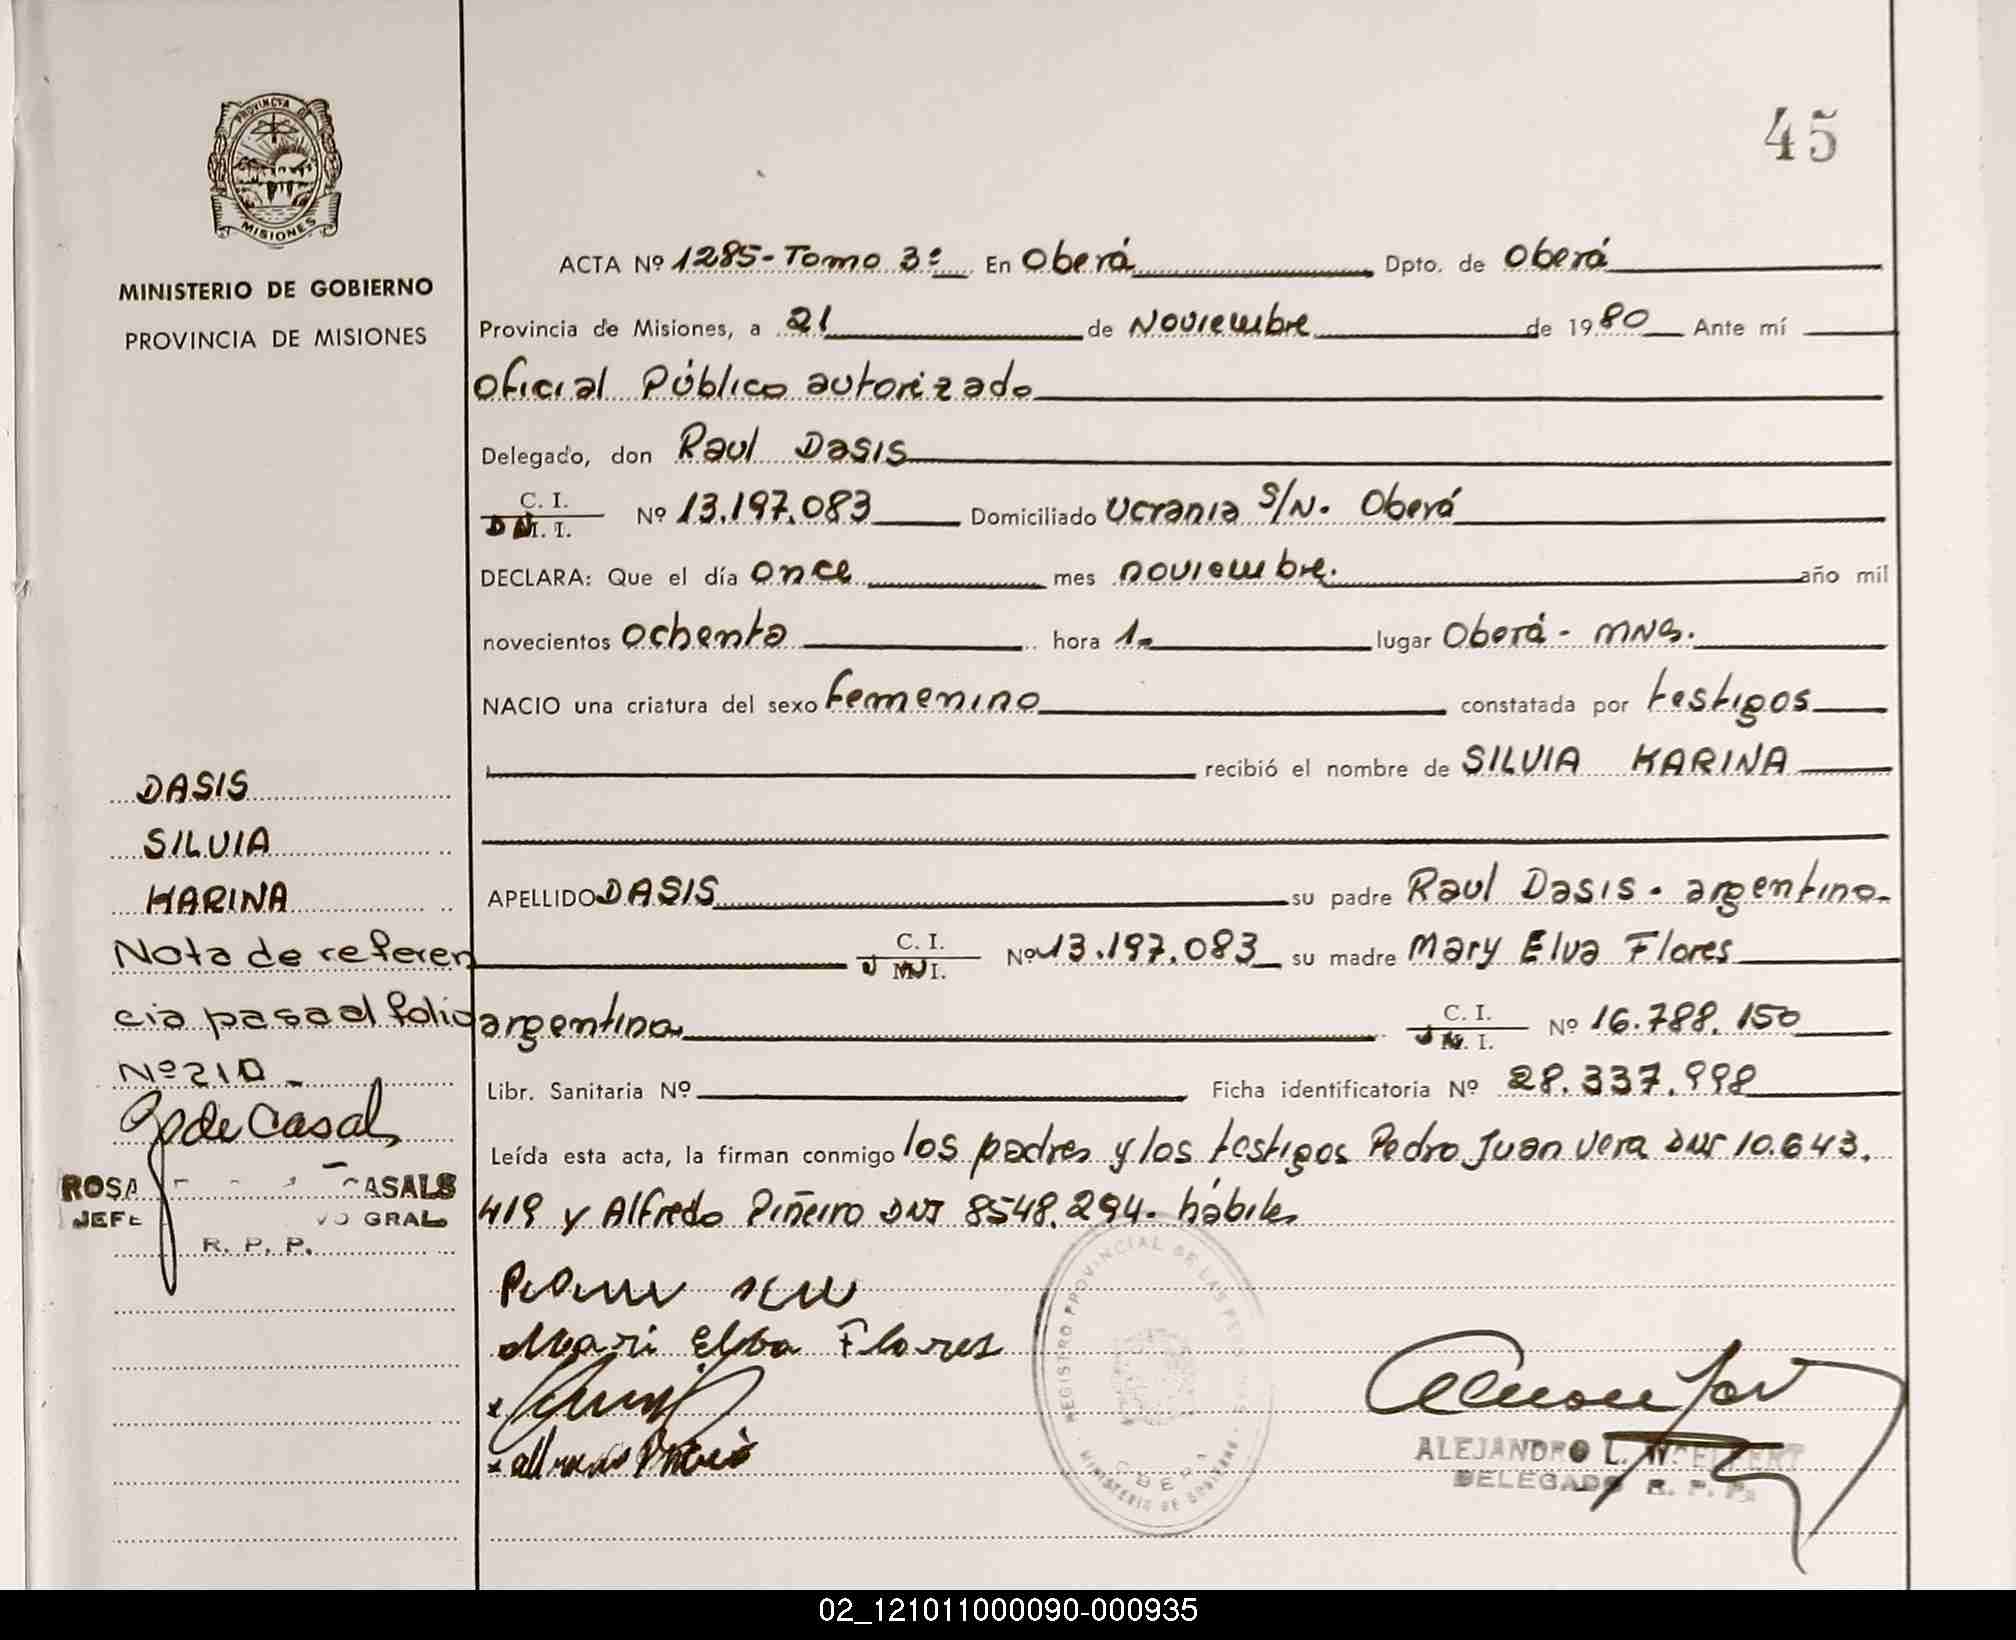 45
PROVINCIA
MISIONES
MINISTERIO DE GOBIERNO
PROVINCIA DE MISIONES
ACTA Nº 1285-Tomo 3º En Oberá Dpto. de Oberá
Provincia de Misiones, a 21 de Noviembre de 1980 Ante mí
Oficial Público autorizado
Delegado, don Raul Dasis
C. I.
DNI. I. Nº 13.197.083 Domiciliado Ucrania S/N. Oberá
DECLARA: Que el día once mes noviembre. año mil
novecientos ochenta hora 1. lugar Oberá - MNS.
NACIO una criatura del sexo femenino constatada por testigos
recibió el nombre de SILVIA KARINA
APELLIDO DASIS su padre Raul Dasis. argentino.
C. I.
M. I. Nº 13.197.083 su madre Mary Elva Flores
argentina C. I.
M. I. Nº 16.788.150
Libr. Sanitaria Nº Ficha identificatoria Nº 28.337.998
Leída esta acta, la firman conmigo los padres y los testigos Pedro Juan Vera DNI 10.643.
419 y Alfredo Piñeiro DNI 8548.294. hábiles
Mari Elba Flores
DASIS
SILVIA
KARINA
Nota de referen
cia pasa al folio
Nº 210
de Casals
ROSA CASALS
JEFE GRAL
R. P. P.
REGISTRO PROVINCIAL DE LAS PERSONAS
OBERA
MINISTERIO DE GOBIERNO
ALEJANDRO L.
DELEGADO R. P. P.
02_121011000090-000935